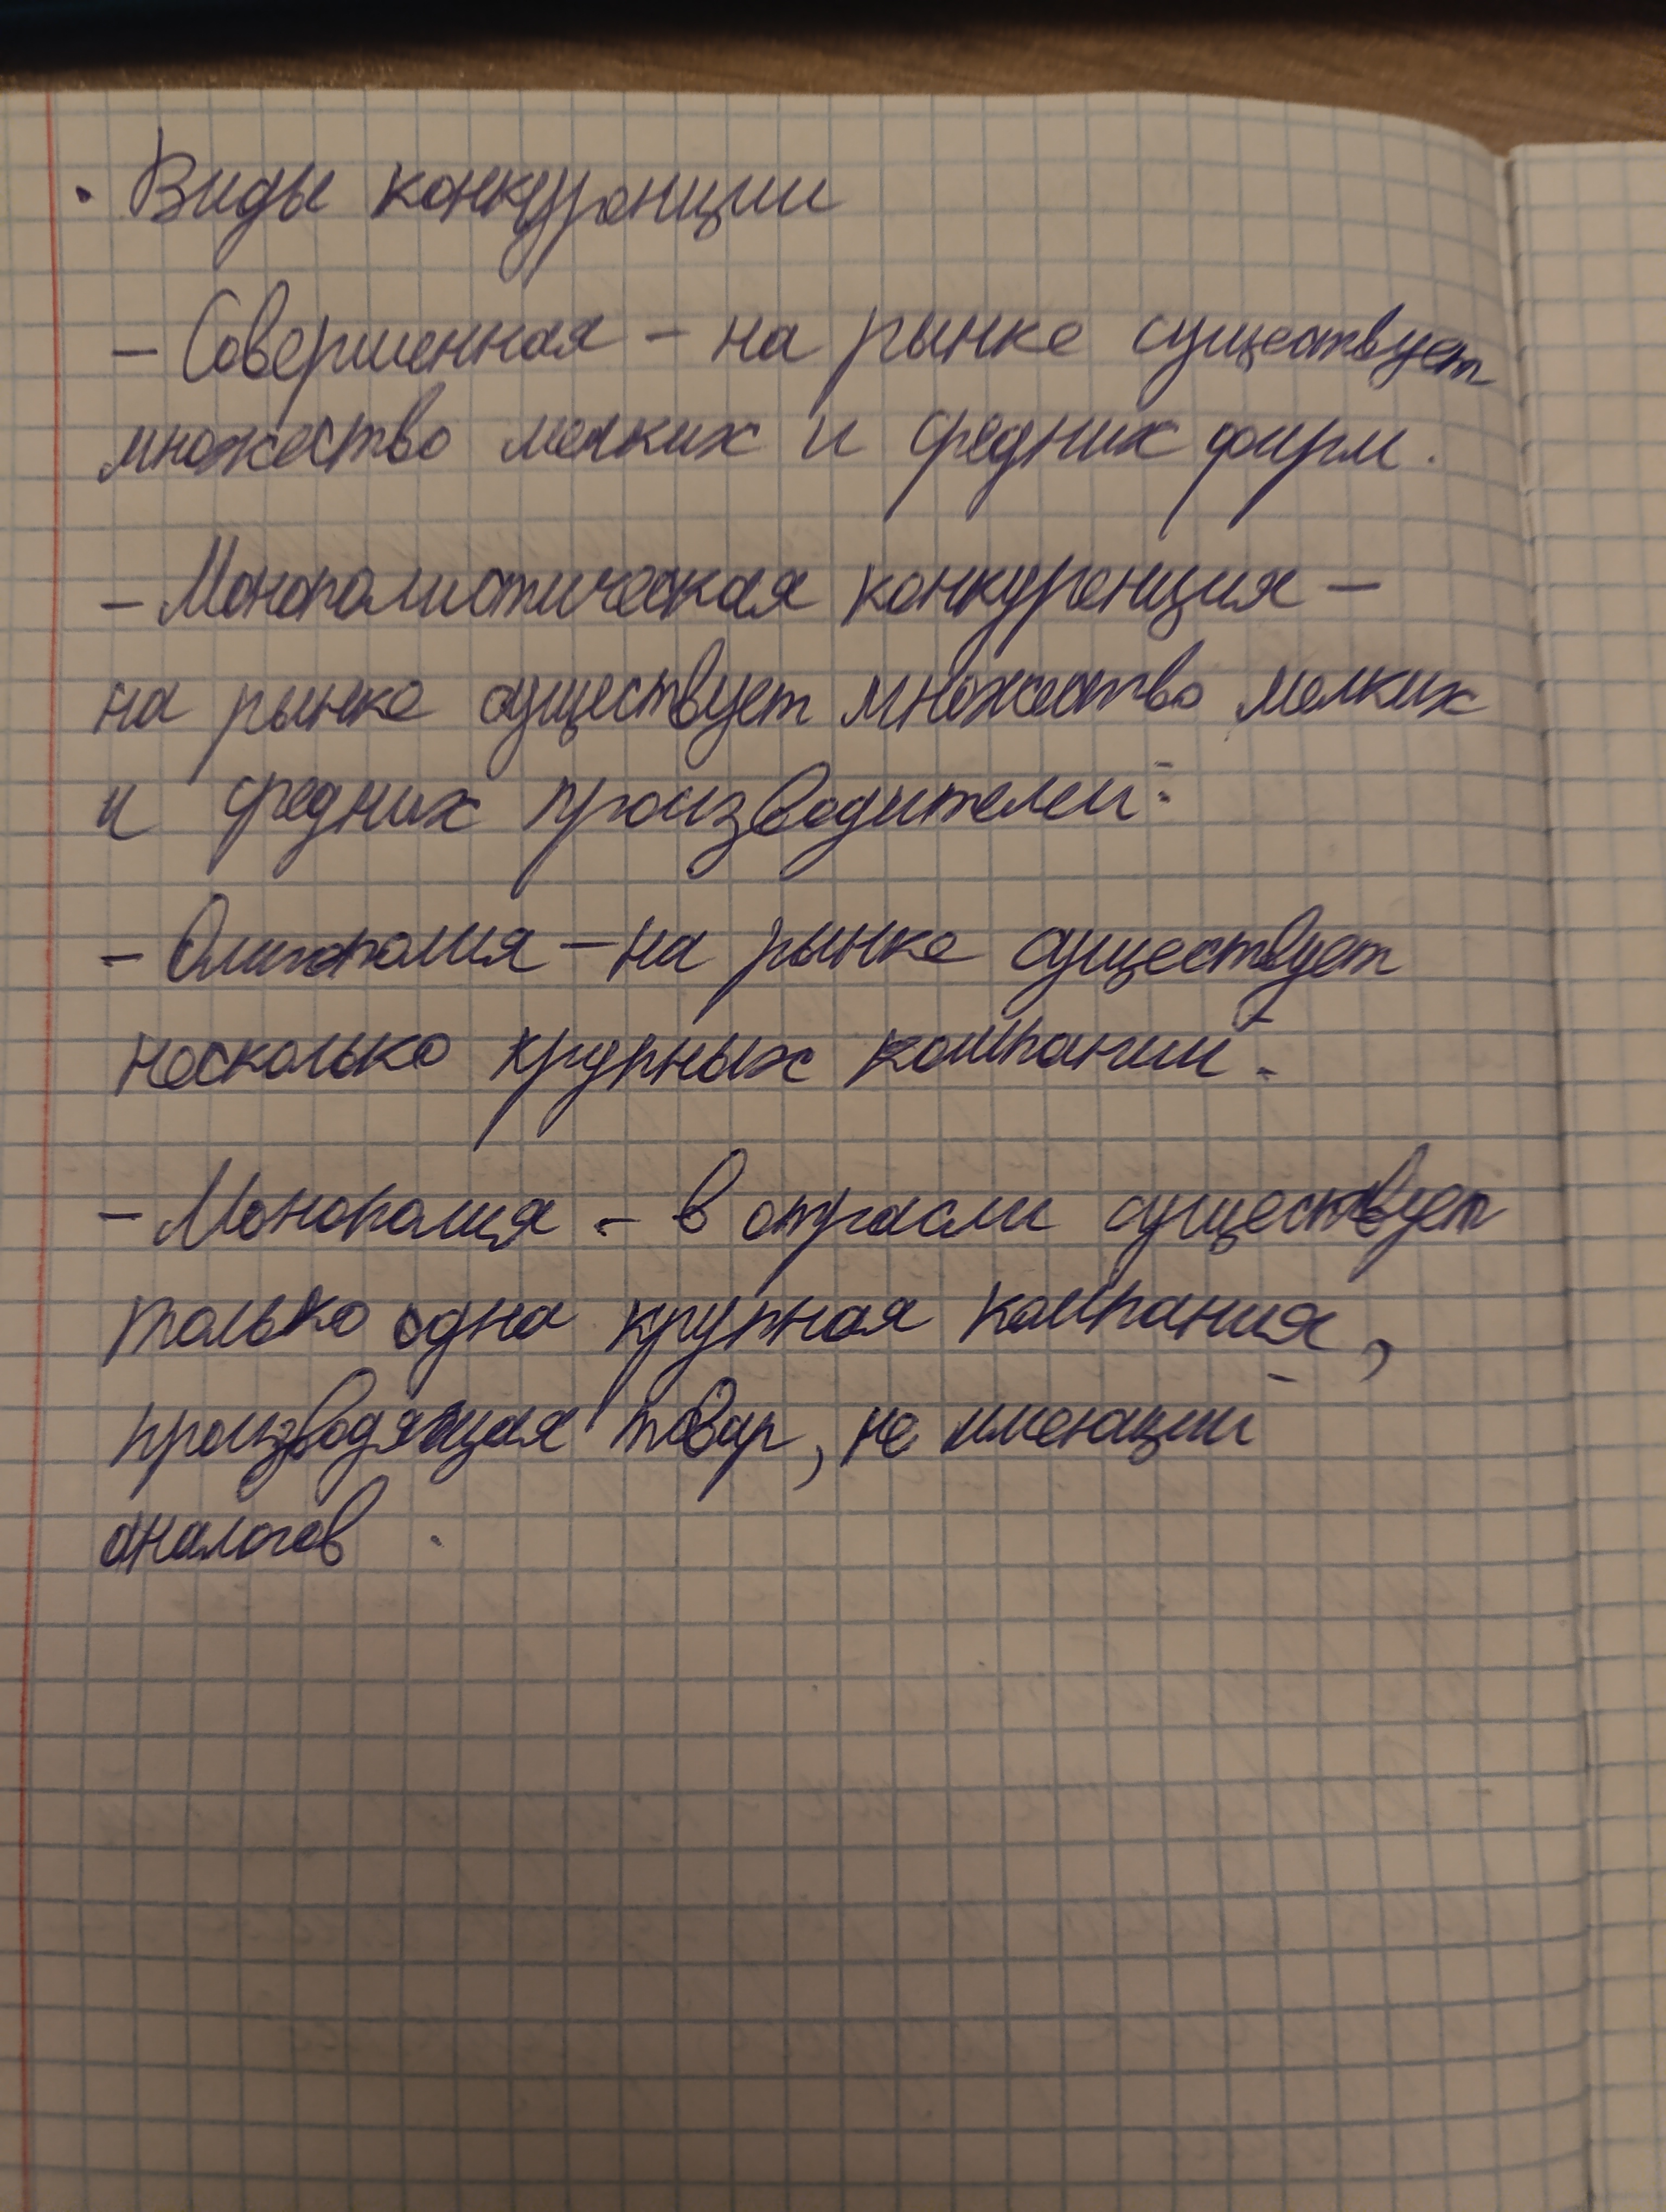 · Виды конкуренции
– Совершенная – на рынке существует
множество мелких и средних фирм.
– Монополистическая конкуренция –
на рынке существует множество мелких
и средних производителей.
– Олигополия – на рынке существует
несколько крупных компаний.
– Монополия – в отрасли существует
только одна крупная компания,
производящая товар, не имеющий
аналогов.